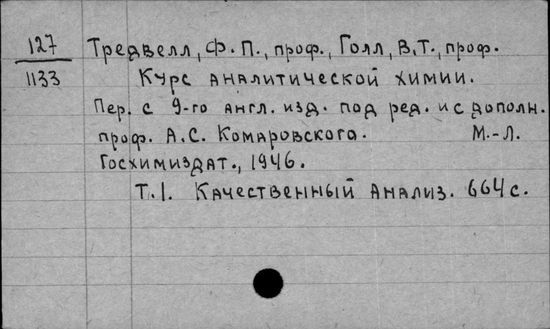 127 Тредвелл, Ф.П., проф., Голл, В.Т., проф.
1133 Курс аналитической химии.
Пер. с 9-го англ. изд. под ред. и с дополн.
проф. А.С. Комаровского. М.-Л.
Госхимиздат., 1946.
Т.1. Качественный анализ. 664 с.